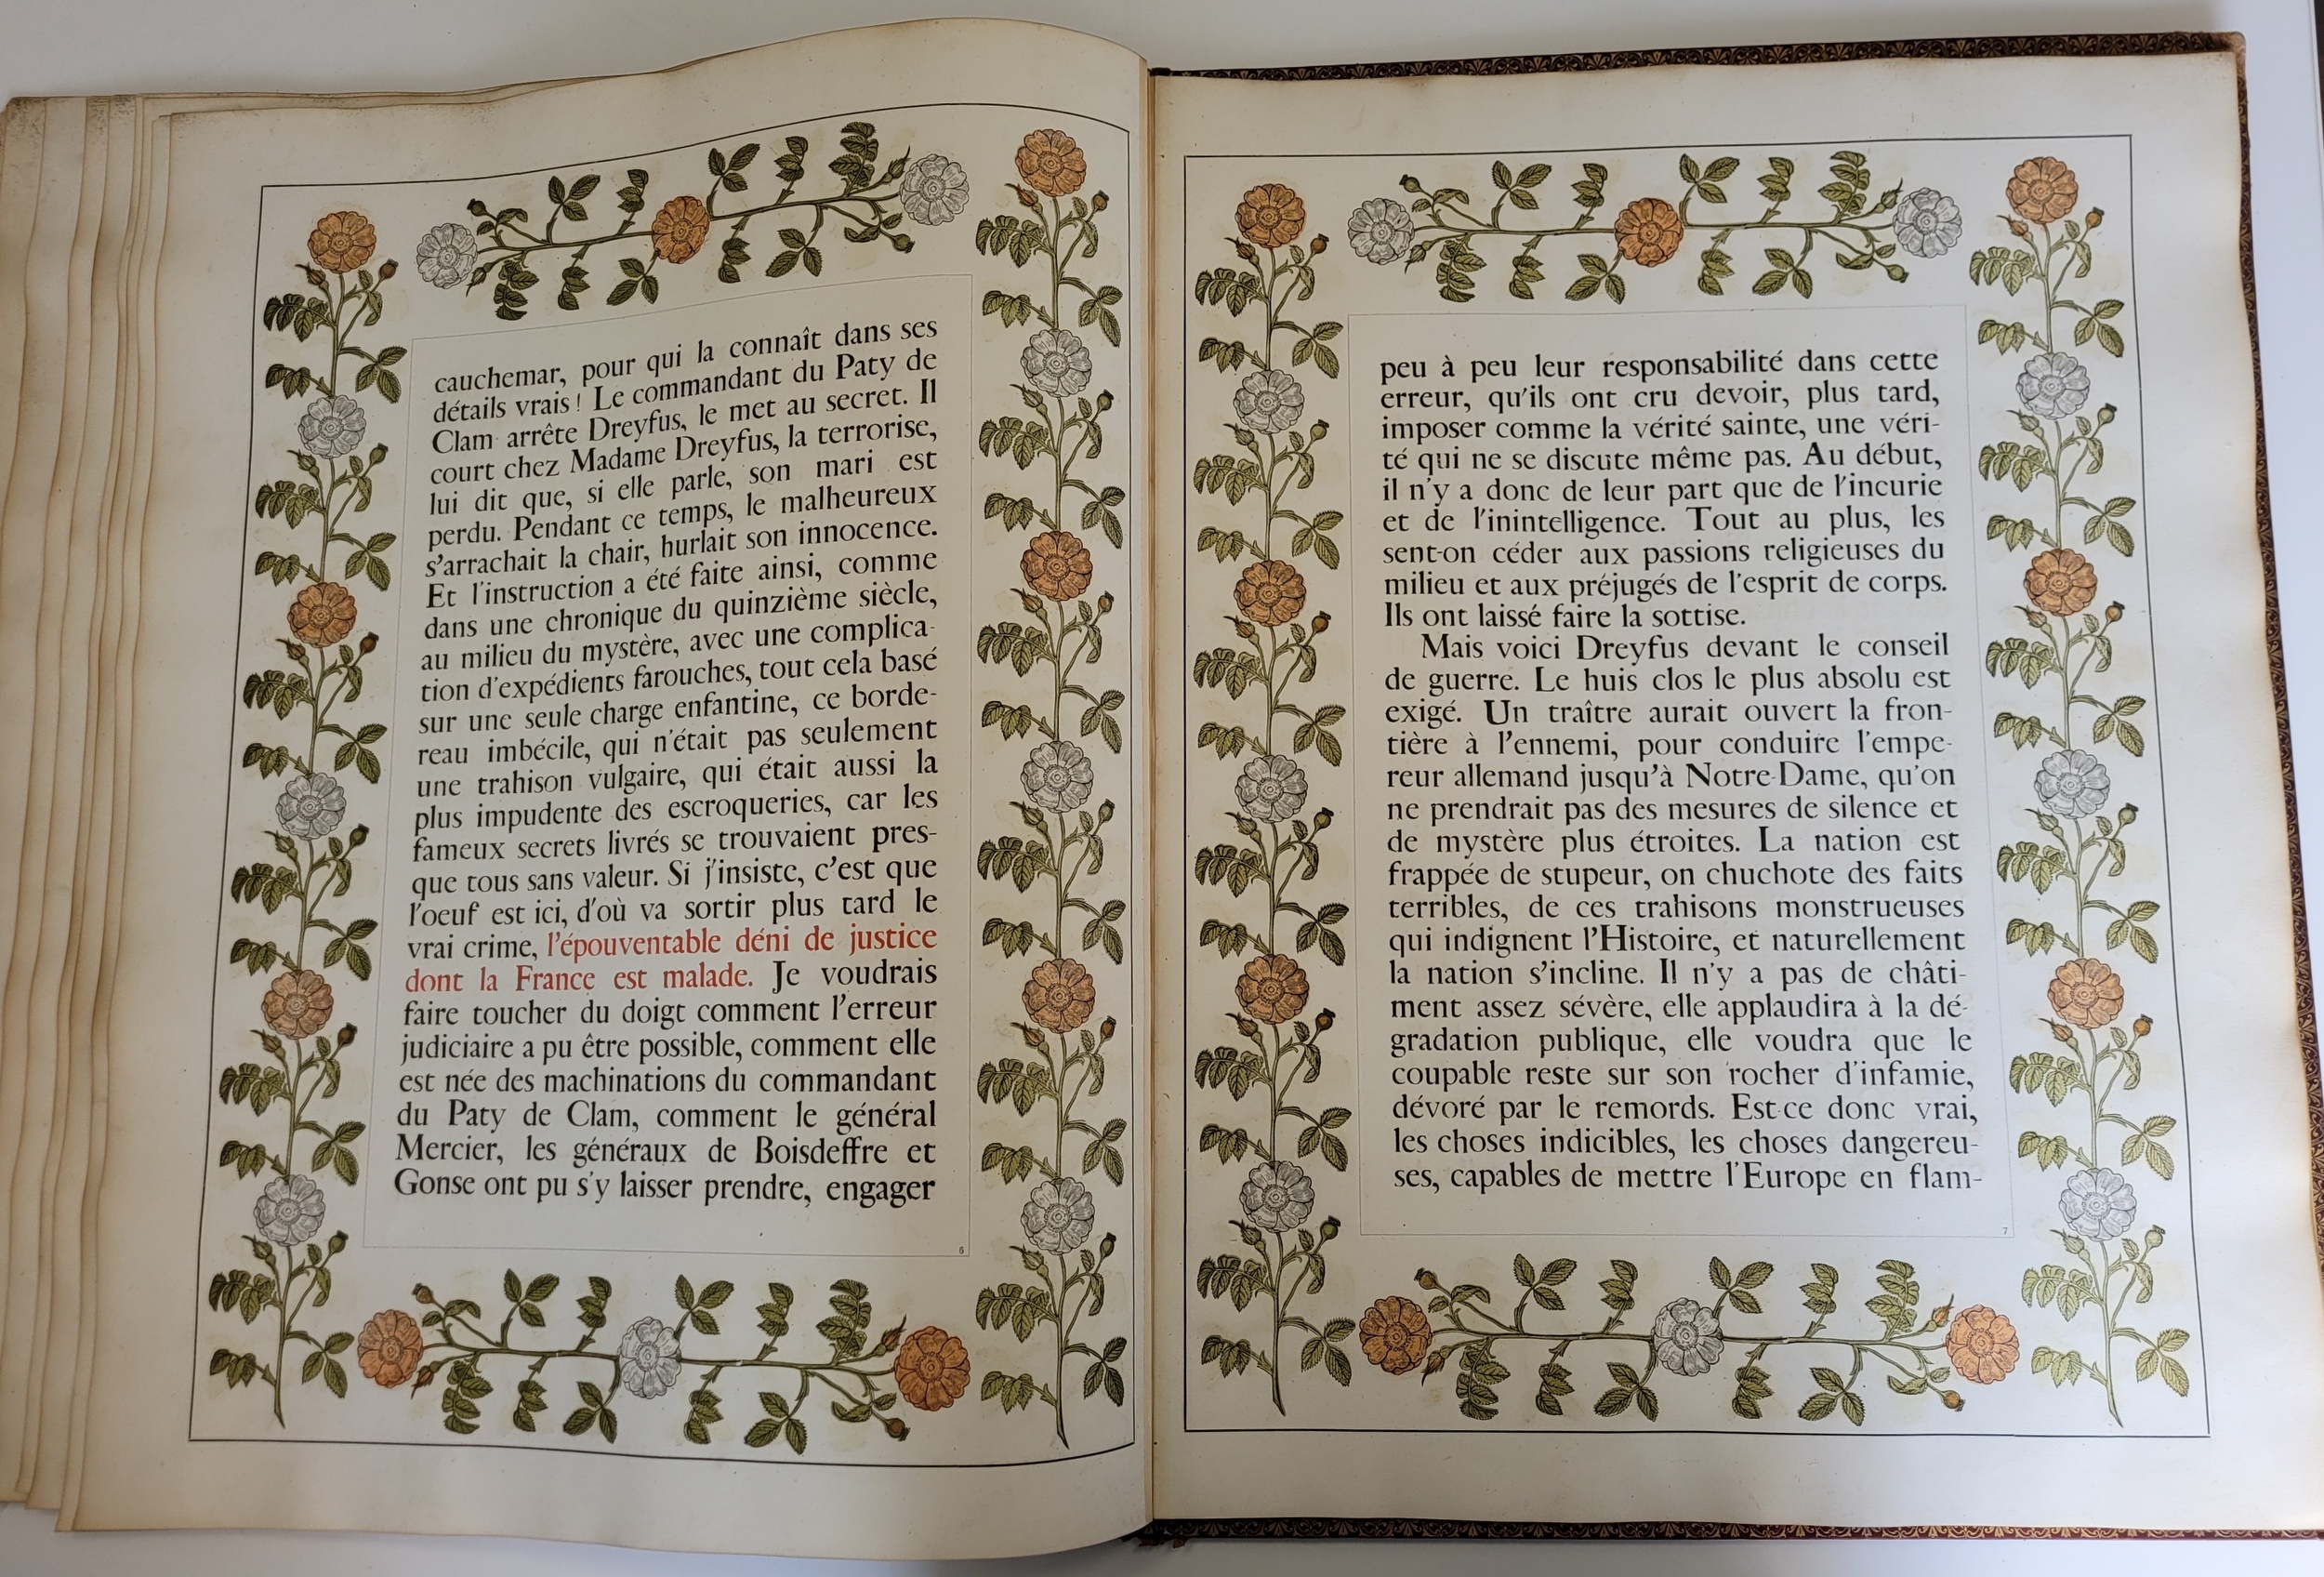 cauchemar, pour qui la connaît dans ses
détails vrais! Le commandant du Paty de
Clam arrête Dreyfus, le met au secret. Il
court chez Madame Dreyfus, la terrorise,
lui dit que, si elle parle, son mari est
perdu. Pendant ce temps, le malheureux
s'arrachait la chair, hurlait son innocence.
Et l'instruction a été faite ainsi, comme
dans une chronique du quinzième siècle,
au milieu du mystère, avec une complica-
tion d'expédients farouches, tout cela basé
sur une seule charge enfantine, ce borde-
reau imbécile, qui n'était pas seulement
une trahison vulgaire, qui était aussi la
plus impudente des escroqueries, car les
fameux secrets livrés se trouvaient pres-
que tous sans valeur. Si j'insiste, c'est que
l'oeuf est ici, d'où va sortir plus tard le
vrai crime, l'épouventable déni de justice
dont la France est malade. Je voudrais
faire toucher du doigt comment l'erreur
judiciaire a pu être possible, comment elle
est née des machinations du commandant
du Paty de Clam, comment le général
Mercier, les généraux de Boisdeffre et
Gonse ont pu s'y laisser prendre, engager
6
peu à peu leur responsabilité dans cette
erreur, qu'ils ont cru devoir, plus tard,
imposer comme la vérité sainte, une véri-
té qui ne se discute même pas. Au début,
il n'y a donc de leur part que de l'incurie
et de l'inintelligence. Tout au plus, les
sent-on céder aux passions religieuses du
milieu et aux préjugés de l'esprit de corps.
Ils ont laissé faire la sottise.
Mais voici Dreyfus devant le conseil
de guerre. Le huis clos le plus absolu est
exigé. Un traître aurait ouvert la fron-
tière à l'ennemi, pour conduire l'empe-
reur allemand jusqu'à Notre-Dame, qu'on
ne prendrait pas des mesures de silence et
de mystère plus étroites. La nation est
frappée de stupeur, on chuchote des faits
terribles, de ces trahisons monstrueuses
qui indignent l'Histoire, et naturellement
la nation s'incline. Il n'y a pas de châti-
ment assez sévère, elle applaudira à la dé-
gradation publique, elle voudra que le
coupable reste sur son rocher d'infamie,
dévoré par le remords. Est-ce donc vrai,
les choses indicibles, les choses dangereu-
ses, capables de mettre l'Europe en flam-
7